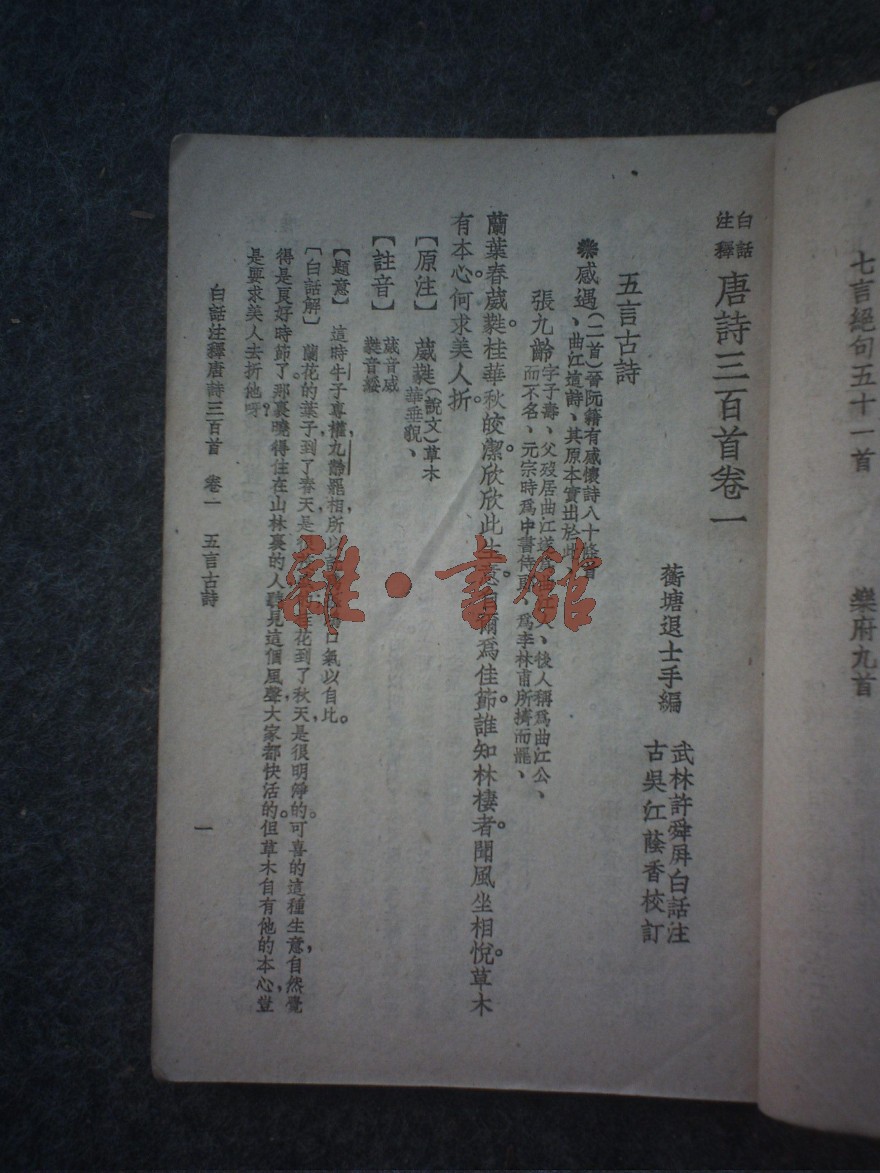 七言絕句五十一首 樂府九首
白話注釋 唐詩三百首卷一
蘅塘退士手編
武林許舜屏白話注
古吳江蔭香校訂
五言古詩
感遇(二首)晉阮籍有感懷詩八十餘首
、曲江這詩、其原本實出於此
張九齡字子壽、父歿居曲江、後人稱爲曲江公、
而不名、元宗時爲中書侍郎、爲李林甫所擠而罷、
蘭葉春葳蕤。桂華秋皎潔。欣欣此生意。自爾爲佳節。誰知林棲者。聞風坐相悅。草木
有本心。何求美人折。
【原注】 葳蕤(說文)草木
華垂貌、
【註音】 葳音威
蕤音綏
【題意】 這時牛子專權,九齡罷相,所以口氣以自比。
【白話解】 蘭花的葉子到了春天是很花到了秋天,是很明淨的。可喜的這種生意,自然覺
得是良好時節了。那裏曉得住在山林裏的人,聽見這個風聲,大家都快活的。但草木自有他的本心,豈
是要求美人去折他呀?
白話注釋唐詩三百首 卷一 五言古詩
一
雜·書館